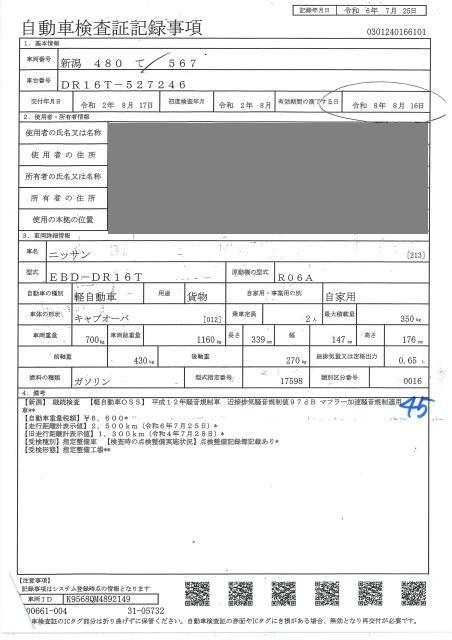 記録年月日 令和 6年 7月 25日
自動車検査証記録事項
0301240166101
1. 基本情報
車両番号 新潟 480 て 567
車台番号 DR16T-527246
交付年月日 令和 2年 8月 17日 初度検査年月 令和 2年 8月 有効期間の満了する日 令和 8年 8月 16日
2. 使用者・所有者情報
使用者の氏名又は名称
使用者の住所
所有者の氏名又は名称
所有者の住所
使用の本拠の位置
3. 車両詳細情報
車名 ニッサン [213]
型式 EBD-DR16T 原動機の型式 R06A
自動車の種別 軽自動車 用途 貨物 自家用・事業用の別 自家用
車体の形状 キャブオーバ [012] 乗車定員 2人 最大積載量 350kg
車両重量 700kg 車両総重量 1160kg 長さ 339cm 幅 147cm 高さ 176cm
前軸重 430kg 後軸重 270kg 総排気量又は定格出力 0.65 L
燃料の種類 ガソリン 型式指定番号 17598 類別区分番号 0016
4. 備考
【新潟】 継続検査 【軽自動車OSS】 平成12年騒音規制車 近接排気騒音規制値97dB マフラー加速騒音規制適用
車** 45
【自動車重量税額】¥6,600*
【走行距離計表示値】2,500km(令和6年7月25日)*
【旧走行距離計表示値】1,300km(令和4年7月28日)*
【受検種別】指定整備車 【検査時の点検整備実施状況】点検整備記録簿記載あり*
【受検形態】指定整備工場**
【注意事項】
記録事項はシステム登録時点の情報となります
車両ID K9568QM4892149
00661-004 31-05732
車検査証のICタグ部分は折り曲げずに保管ください。自動車検査証の券面やICタグにき損がある場合、無効となり再交付が必要です。